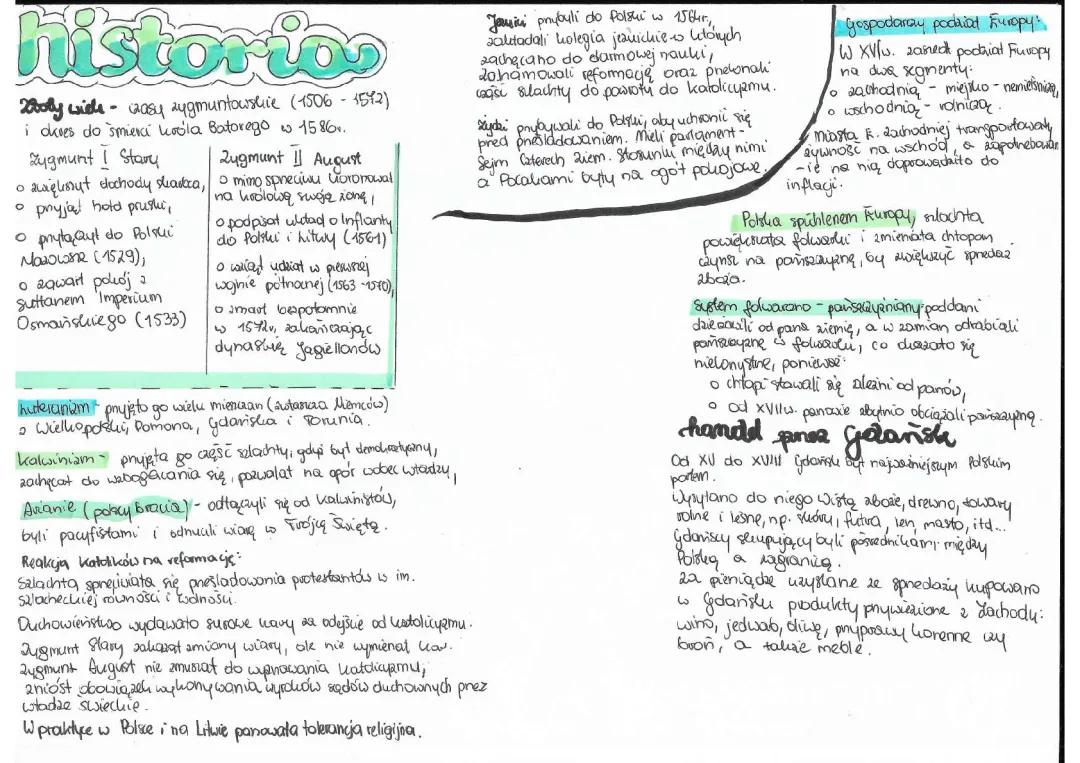 historia
Złoty wiek - czasy zygmuntowskie (1506 - 1572)
i okres do śmierci króla Batorego w 1586r.
Zygmunt I Stary
o zwiększył dochody skarbca,
o przyjął hołd pruski,
o przyłączył do Polski
Mazowsze (1529),
o zawarł pokój z
sułtanem Imperium
Osmańskiego (1533)
Zygmunt II August
o mimo sprzeciwu koronował
na królową swoją żonę,
o podpisał układ o Inflanty
do Polski i Litwy (1561)
o wziął udział w pierwszej
wojnie północnej (1563 - 1570),
o zmarł bezpotomnie
w 1572r, zakańczając
dynastię Jagiellonów
luteranizm - przyjęto go wielu mieszczan (zwłaszcza Niemców)
z Wielkopolski, Pomorza, Gdańska i Torunia.
Kalwinizm - przyjęta go część szlachty, gdyż był demokratyczny,
zachęcał do wzbogacania się, pozwalał na opór wobec władzy,
Arianie (polscy bracia) - odłączyli się od kalwinistów,
byli pacyfistami i odrzucali wiarę w Trójcę Świętą.
Reakcja katolików na reformację:
Szlachta sprzeciwiała się prześladowania protestantów w im.
szlacheckiej równości i wolności.
Duchowieństwo wydawało surowe kary za odejście od katolicyzmu.
Zygmunt Stary zakazał zmiany wiary, ale nie wymierzał kar.
Zygmunt August nie zmuszał do wyznawania katolicyzmu,
zniósł obowiązek wykonywania wyroków sądów duchownych przez
władze świeckie.
W praktyce w Polsce i na Litwie panowała tolerancja religijna.
Jezuici przybyli do Polski w 1564r.,
zakładali kolegia jezuickie w których
zachęcano do darmowej nauki,
zahamowali reformację oraz przekonali
część szlachty do powrotu do katolicyzmu.
Żydzi przybywali do Polski, aby uchronić się
przed prześladowaniem. Mieli parlament -
Sejm Czterech Ziem. Stosunki między nimi
a Polakami były na ogół pokojowe.
Gospodarczy podział Europy:
W XVIw. zaszedł podział Europy
na dwa segmenty:
o zachodnią - miejsko - rzemieślniczą,
o wschodnią - rolniczą.
Miasta E. zachodniej transportowały
żywność na wschód, a zapotrzebowan
-ie na nią doprowadziło do
inflacji.
Polska spichlerzem Europy, szlachta
powiększała folwarki i zmieniała chłopom
czynsz na pańszczyznę, by zwiększyć sprzedaż
zboża.
System folwarczno - pańszczyźniany: poddani
dzierżawili od pana ziemię, a w zamian odrabiali
pańszczyznę w folwarku, co okazało się
niekorzystne, ponieważ:
o chłopi stawali się zależni od panów,
o od XVIIw. panowie zbytnio obciążali pańszczyzną.
handel przez Gdańsk
Od XV do XVIII Gdańsk był najważniejszym Polskim
portem.
Wysyłano do niego Wisłą zboże, drewno, towary
rolne i leśne, np. skóry, futra, len, masło, itd...
Gdańscy skupujący byli pośrednikami między
Polską a zagranicą.
Za pieniądze uzyskane ze sprzedaży kupowano
w Gdańsku produkty przywiezione z Zachodu:
wino, jedwab, oliwę, przyprawy korzenne czy
broń, a także meble.